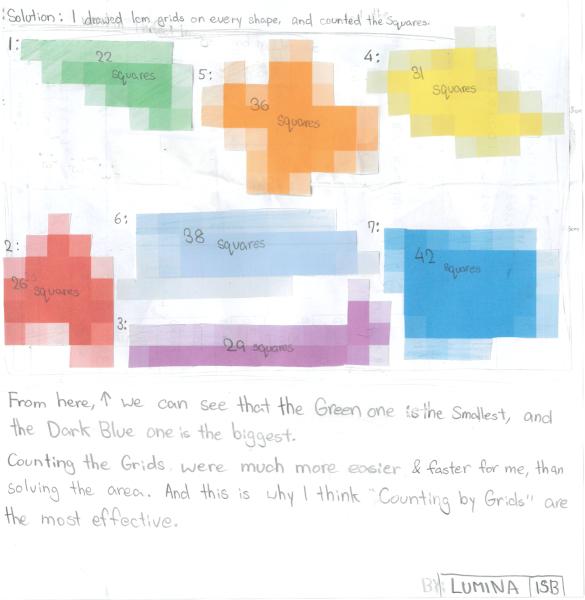 Solution: I drawed 1cm grids on every shape, and counted the Squares.
1:
22
squares
5:
36
Squares
4:
31
squares
2:
26
squares
6:
38 squares
7:
42
squares
3:
29 squares
From here, ↑ we can see that the Green one is the Smallest, and
the Dark Blue one is the biggest.
Counting the Grids were much more easier & faster for me, than
solving the area. And this is why I think "Counting by Grids" are
the most effective.
BY: LUMINA ISB